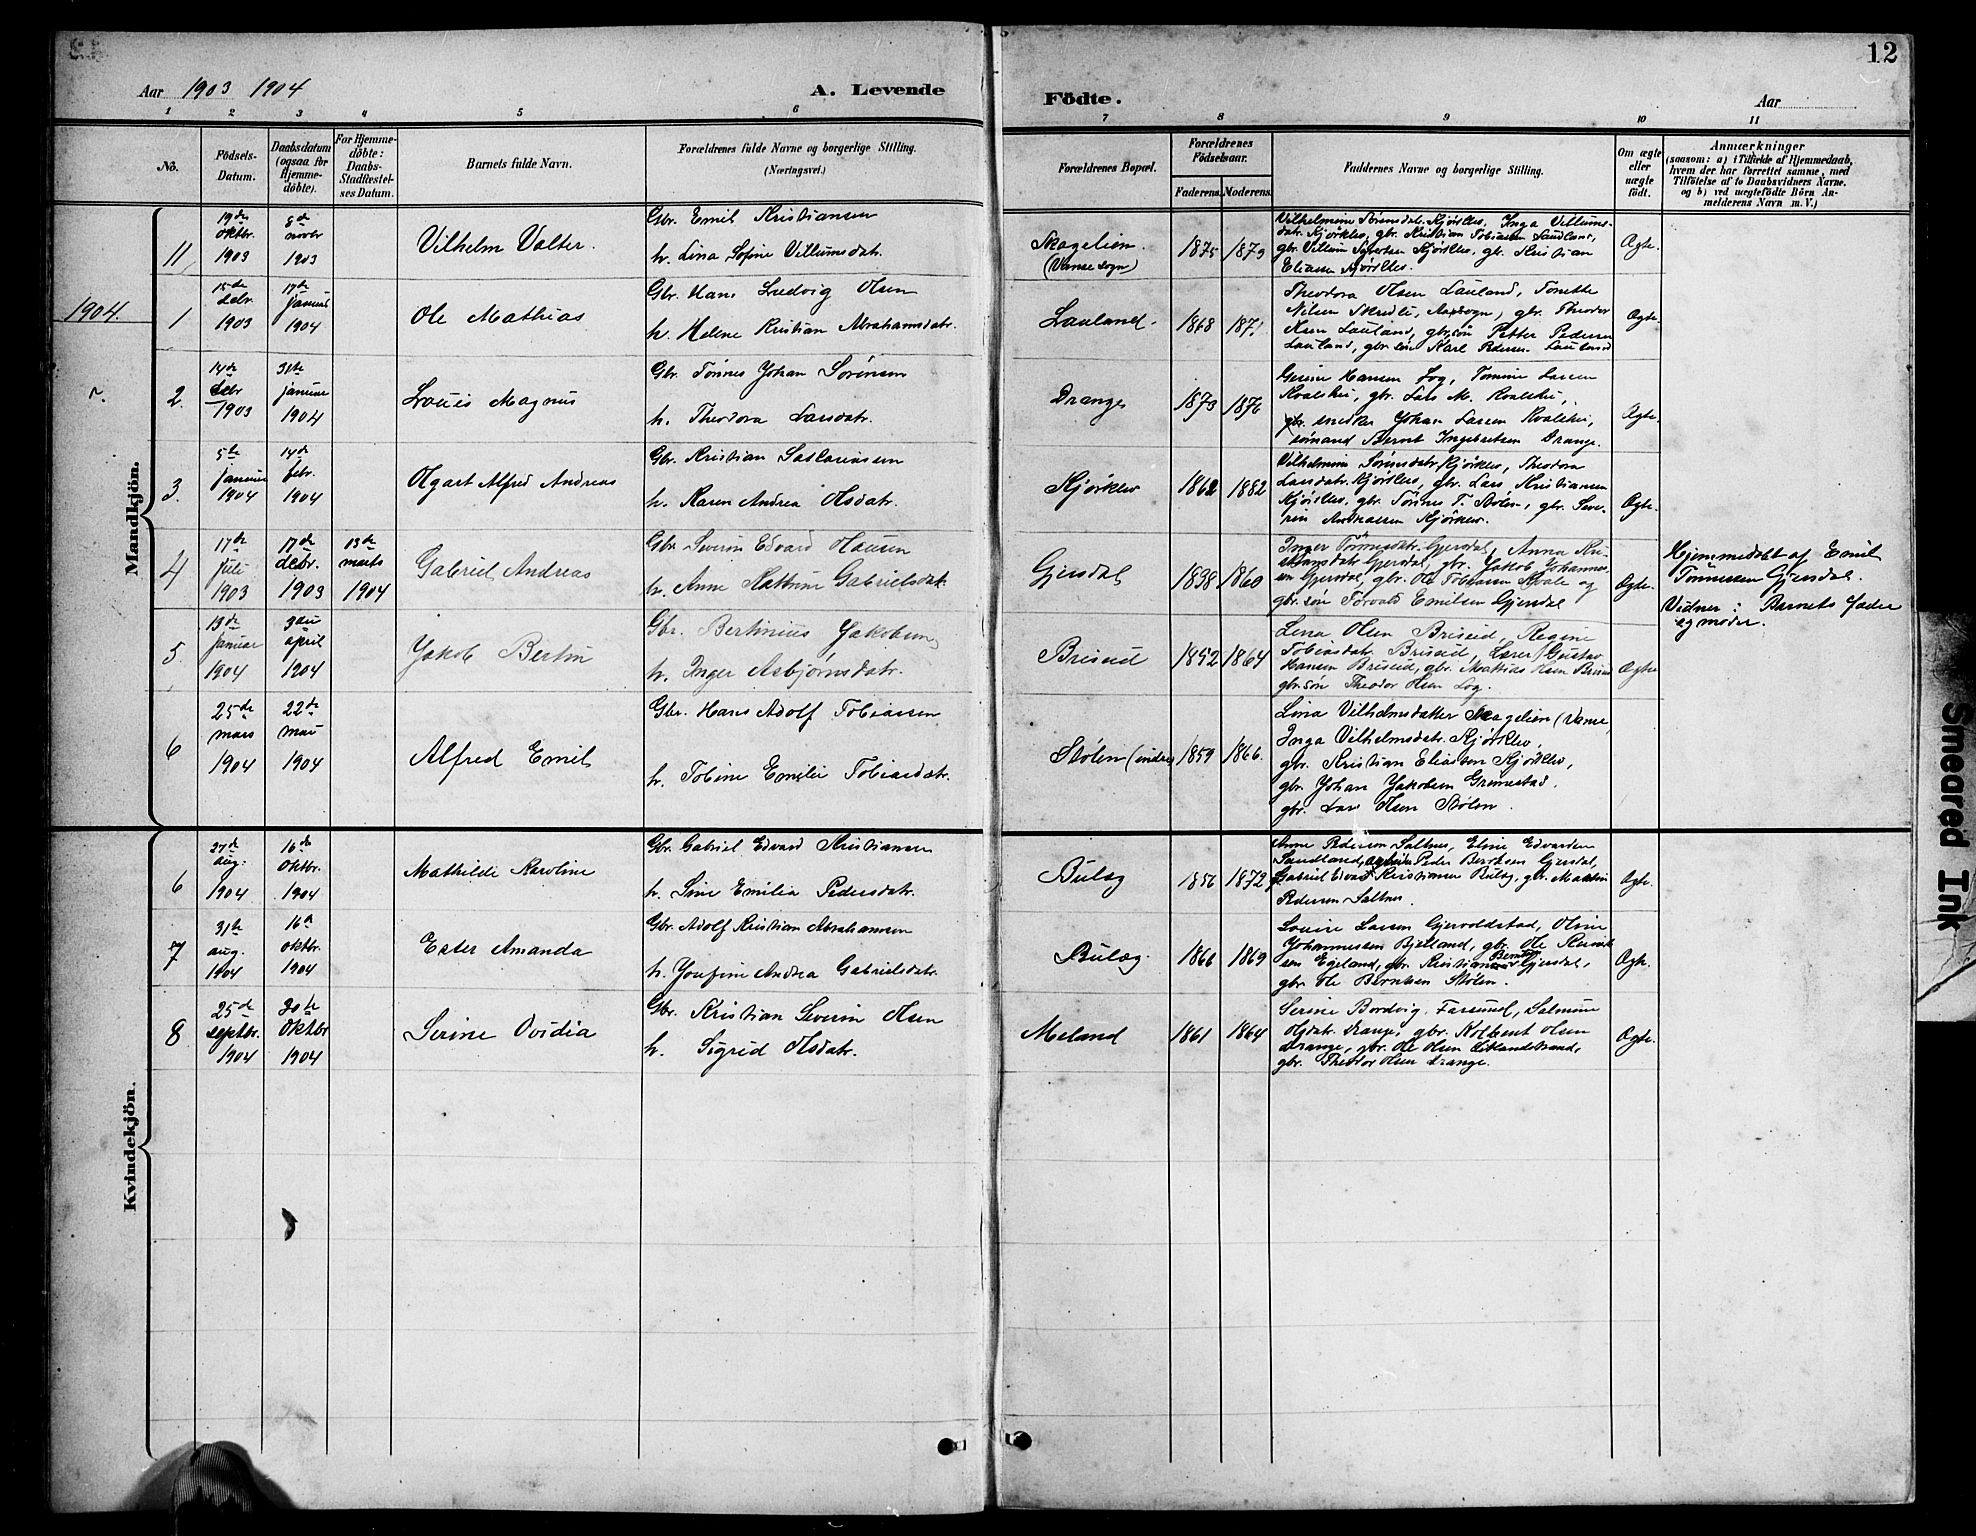 12
Aar 1903 1904
A. Levende
Födte.
Aar
1 2 3 4 5 6
7 8 9 10 11
No.
Födsels-
Datum.
Daabsdatum
(ogsaa for
Hjemme-
döbte).
For Hjemme-
döbte:
Daabs-
Stadfestel-
ses Datum.
Barnets fulde Navn.
Forældrenes fulde Navne og borgerlige Stilling.
(Næringsvei.)
Forældrenes Bopæl.
Forældrenes
Födselsaar.
Faderens. Moderens.
Faddernes Navne og borgerlige Stilling.
Om ægte
eller
uægte
födt.
Anmærkninger
(saasom: a) i Tilfælde af Hjemmedaab,
hvem der har forrettet samme, med
Tilföielse af to Daabsvidners Navne.
og b) ved uægtefödte Börn An-
melderens Navn m. V.)
Mandkjön.
11
19de
oktbr.
1903
8de
novbr
1903
Vilhelm Valter.
Gbr. Emil Kristiansen
h. Lina Sofine Villumsdatr.
Skagelien.
(Vanse sogn)
1875 1879
Vilhelmine Sörensdatr. Kjörklev, Inga Villums-
datr. Kjörklev, gbr. Kristian Tobiassen Sandland,
gbr. Villum Syvertsen Kjörklev, gbr. Kristian
Eliassen Kjörklev.
Ægte.
1904.
1
15de
debr.
1903
17de
januar
1904
Ole Mathias
Gbr. Hans Ludvig Olsen
h. Helene Kristian Abrahamsdatr.
Lauland.
1868 1871
Theodora Olsen Lauland, Tonette
Nilsen Skredli, gbr. Theodor
Olsen Lauland, gbr. sön Petter Pedersen
Lauland, gbr. sön Karl Pedersen Lauland
Ægte.
2.
14de
debr
1903
31te
januar
1904
Louis Magnus
Gbr. Tönnes Johan Sörensen
h. Theodora Larsdatr.
Drange
1873 1876
Gesine Hansen Log, Tomine Larsen
Kvalskei, gbr. Lars M. Kvalskei,
snedker Johan Larsen Kvalskei,
sömand Bernt Ingebretsen Drange.
Ægte.
3.
5te
januar
1904
14de
febr.
1904
Olgart Alfred Andreas
Gbr. Kristian Sakariassen
h. Karen Andrea Olsdatr.
Kjörklev
1862 1882
Vilhelmine Sörensdatr. Kjörklev, Theodora
Larsdatr. Kjörklev, gbr. Lars Kristiansen
Kjörklev, gbr. Tönnes T. Stölen, gbr. Seve-
rin Andreassen Kjörklev.
Ægte.
4
17de
juli
1903
17de
debr.
1903
13de
marts
1904
Gabriel Andreas
Gbr. Severin Edvard Hansen
h. Anne Kathrine Gabrielsdatr.
Gjersdal
1838 1860
Inger Tönnesdatr. Gjersdal, Anna Kri-
stiansdatr. Gjersdal, gbr. Jakob Johannes-
sen Gjersdal, gbr. Ole Tobiassen Kvale og
gbr. sön Torvald Emilsen Gjersdal
Ægte.
Hjemmedöbt af Emil
Tönnessen Gjersdal.
Vidner: Barnets fader
og moder.
5.
13de
januar
1904
3die
april
1904
Jakob Bertin
Gbr. Bertinius Jakobsen
h. Inger Asbjörnsdatr.
Briseid
1852 1864
Lena Olsen Briseid, Regine
Tobiasdatr. Briseid, Lærer Gustav
Hansen Briseid, gbr. Mathias Olsen Briseid
gbr. sön Theodor Olsen Log.
Ægte
6
25de
mars
1904
22de
mai
1904
Alfred Emil
Gbr. Hans Adolf Tobiassen
h. Tobine Emilie Tobiasdatr.
Stölen (indre)
1859 1866.
Lina Vilhelmsdatter Skagelien (Vanse)
Inga Vilhelmsdatr. Kjörklev,
gbr. Kristian Eliassen Kjörklev,
gbr. Johan Jakobsen Grimestad.
gbr. Lars Olsen Stölen.
Kvindekjön.
6
27de
aug.
1904
16de
Oktbr.
1904
Mathilde Karoline
Gbr. Gabriel Edvard Kristiansen
h. Sine Emilia Pedersdatr.
Bulæg
1856 1872
Anne Pedersen Saltnes, Eline Edvardsen
Sandland, Peder Berntsen Gjersdal,
Gabriel Edvard Kristiansen Bulæg, gbr. Mathias
Pedersen Saltnes.
Ægte.
7
31te
aug.
1904
16de
oktbr.
1904
Ester Amanda
Gbr. Adolf Kristian Abrahamsen
h. Josefine Andrea Gabrielsdatr.
Bulæg.
1866 1869
Lovise Larsen Gjervoldstad, Oline
Johannessen Bjelland, gbr. Ole Reinert-
sen Egeland, gbr. Kristian Berntsen Gjersdal,
gbr. Ole Berntsen Stölen.
Ægte.
8
25de
septbr.
1904
30te
Oktbr
1904
Serine Ovidia
Gbr. Kristian Severin Olsen
h. Sigrid Olsdatr.
Meland
1861 1864
Serine Bordvig, Farsund, Salmine
Olsdatr. Drange, gbr. Kolbent Olsen
Drange, gbr. Ole Olsen Eiklandstrand,
gbr. Theodor Olsen Drange.
Ægte.
Smeared Ink